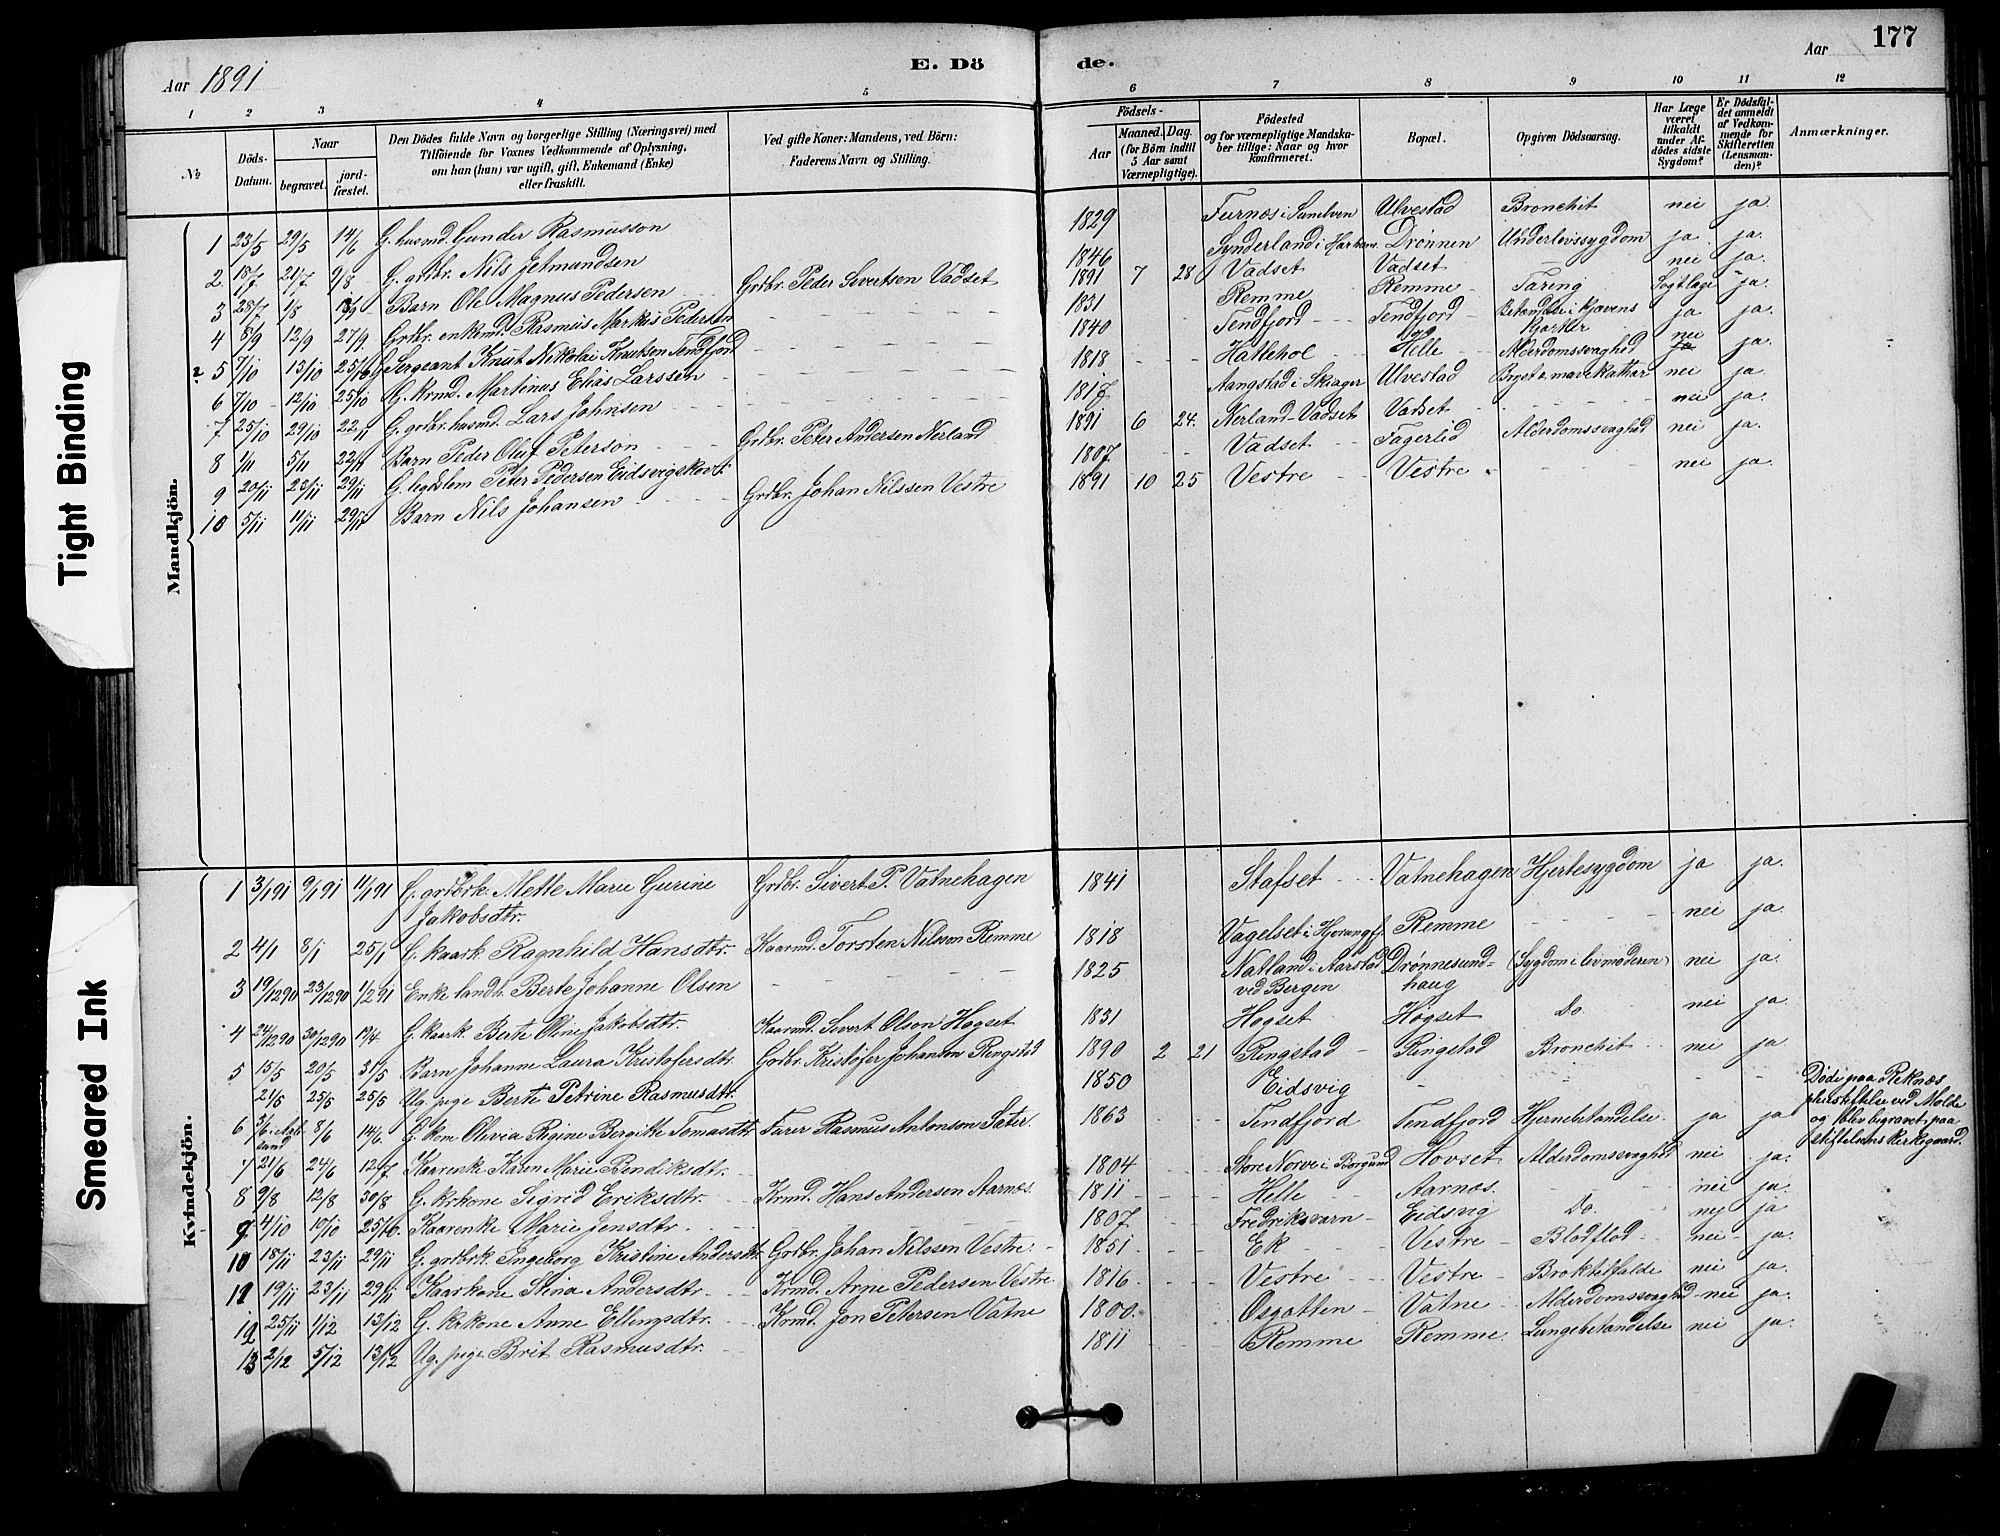 177
Aar 1891
E. Dö
de.
Aar
1 2 3 4 5 6 7 8 9 10 11 12
№
Döds-Datum.
Naar
begravet.
jord-fæstet.
Den Dödes fulde Navn og borgerlige Stilling (Næringsvei) med
Tilföiende for Voxnes Vedkommende af Oplysning,
om han (hun) var ugift, gift, Enkemand (Enke)
eller fraskilt.
Ved gifte Koner: Mandens, ved Börn:
Faderens Navn og Stilling.
Födsels-
Aar
Maaned. Dag.
(for Börn indtil
5 Aar samt
Værnepligtige).
Födested
og for værnepligtige Mandska-
ber tillige: Naar og hvor
konfirmeret.
Bopæl.
Opgiven Dödsaarsag.
Har Læge
været
tilkaldt
under Af-
dödes sidste
Sygdom?
Er Dödsfal-
det anmeldt
af Vedkom-
mende for
Skifteretten
(Lensman-
den)?
Anmærkninger.
Mandkjön.
1 23/5 29/5 14/6 G. husmd. Gunder Rasmusson 1829 Furnæs i Sunelven Ulvestad Bronchit nei ja
2 18/7 21/7 9/8 G. grdbr. Nils Jetmundsen 1846 Synderland i Harham Drønnen Underlivssygdom ja ja.
3 28/7 1/8 Barn Ole Magnus Pedersen Grdbr. Peder Sivertson Vadset 1891 7 28 Vadset Vadset nei ja.
4 8/9 12/9 27/9 Grdbr. enkemd. Rasmus Markus Pedersen 1831 Remme Remme Tæring ja.
5 7/10 13/10 25/10 Sergeant Knut Nikolai Knutsen Tendfjord 1840 Tendfjord Tendfjord ja ja.
6 7/10 12/10 25/10 G. krmd. Martinus Elias Larssen 1818 Hatlehol Helle Alderdomssvaghed nei ja.
7 25/10 29/10 22/11 G. grdbr. husmd. Lars Johnsen 1817 Aangstad i Skiager Ulvestad Bryst o. mavekathar nei ja.
8 1/11 5/11 22/11 Barn Peder Oluf Peterson Grdbr. Peter Andersen Nerland 1891 6 24. Nerland-Vadset Vadset nei ja.
9 20/11 23/11 29/11 G. legdslem Peter Pedersen Eidsvigskovt 1807 Vadset Fagerlid Alderdomssvaghed nei ja.
10 5/11 11/11 29/11 Barn Nils Johansen Grdbr. Johan Nilssen Vestre 1891 10 25 Vestre Vestre nei ja.
Kvindekjön.
1 3/1 91 9/1 91 11/1 91 G. grdbrk. Mette Marie Gurine Grdbr. Sivert P. Vatnehagen 1841 Stafset Vatnehagen Hjertesygdom ja ja.
Jakobsdtr.
2 4/1 8/1 25/1 G. kaark. Ragnhild Hansdtr. Kaarmd. Torsten Nilsson Remme 1818 Vagelset i Hjørungf. Remme nei ja.
3 19/12 90 23/12 90 1/2 91 Enke landh. Berte Johanne Olsen 1825 Natland i Aarstad Drønnesund- (Sygdom i livmoderen) nei ja.
ved Bergen haug
4 24/12 90 30/12 90 19/4 G. kaark. Berte Oline Jakobsdtr. Kaarmd. Sivert Olson Høgset 1831 Høgset Høgset Do. nei ja.
5 15/5 20/5 31/5 Barn Johanne Laura Kristofersdtr. Grdbr. Kristofer Johansen Ringstad 1890 2 21 Ringstad Ringstad Bronchit nei ja
21/5 25/5 25/5 Ug. pige Berte Petrine Rasmusdtr. 1850 Eidsvig Døde paa Reknæs
pleiestiftelse ved Molde
og blev begravet paa
stiftelsens kirkegaard.
6 3/6 8/6 14/6 G. kone Olivia Regine Bergitte Tomasdtr Farer Rasmus Antonson Sæter 1863 Tendfjord Tendfjord Hjernebetændelse. ja ja
7 21/6 24/6 12/7 Kaarenke Karen Marie Bendiksdtr. 1804 Store Nørve i Borgund Hovset Alderdomssvaghed nei ja.
8 9/8 12/8 30/8 G. krkone Sigrid Eriksdtr. Krmd. Hans Andersen Aarnæs. 1811 Helle Aarnæs. nei ja.
9 4/10 10/10 25/10. Kaarenke Marie Jensdtr. 1807 Fredriksvarn Eidsvig Do. nej ja
10 18/11 23/11 29/11 G. grdbrk. Ingeborg Kristine Andersdtr. Grdbr. Johan Nilssen Vestre. 1851 Ek Vestre Blodflod nei ja.
11 19/11 23/11 29/11 Kaarkone Stina Andersdtr. Krmd. Arne Pedersen Vestre 1816. Vestre Vestre Broktilfælde nei ja.
12 25/11 1/12 13/12 G. krkone Anne Ellingsdtr. Krmd. Jon Petersen Vatne 1800. Osgotten Vatne Alderdomssvaghed nei ja.
13 2/12 5/12 13/12 Ug. pige Brit Rasmusdtr. 1811 Remme Remme Lungebetændelse nei ja.
Tight Binding
Smeared Ink